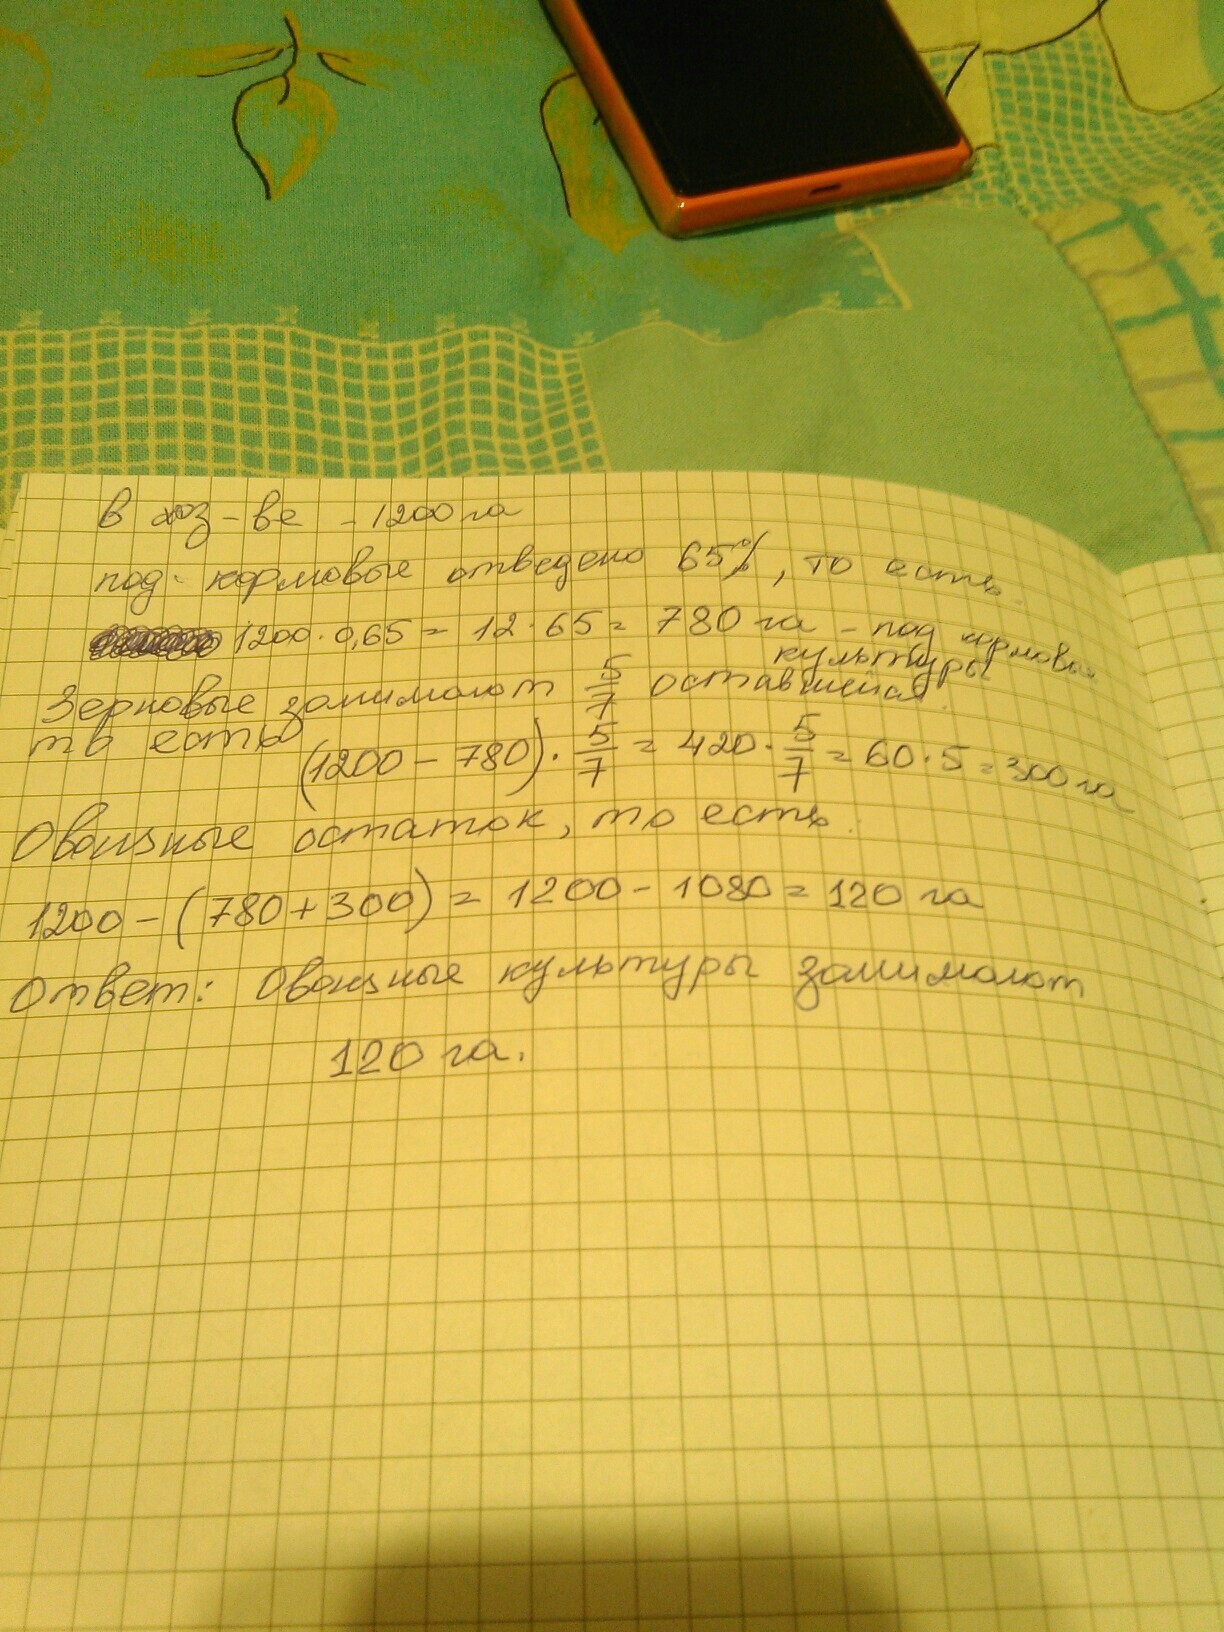 В хоз-ве - 1200 га
под кормовые отведено 65%, то есть
1200 · 0,65 = 12 · 65 = 780 га - под кормовые
культуры
Зерновые занимают 5/7 оставшейся
то есть
(1200 - 780) · 5/7 = 420 · 5/7 = 60 · 5 = 300 га
Овощные остаток, то есть
1200 - (780 + 300) = 1200 - 1080 = 120 га
Ответ: Овощные культуры занимают
120 га.